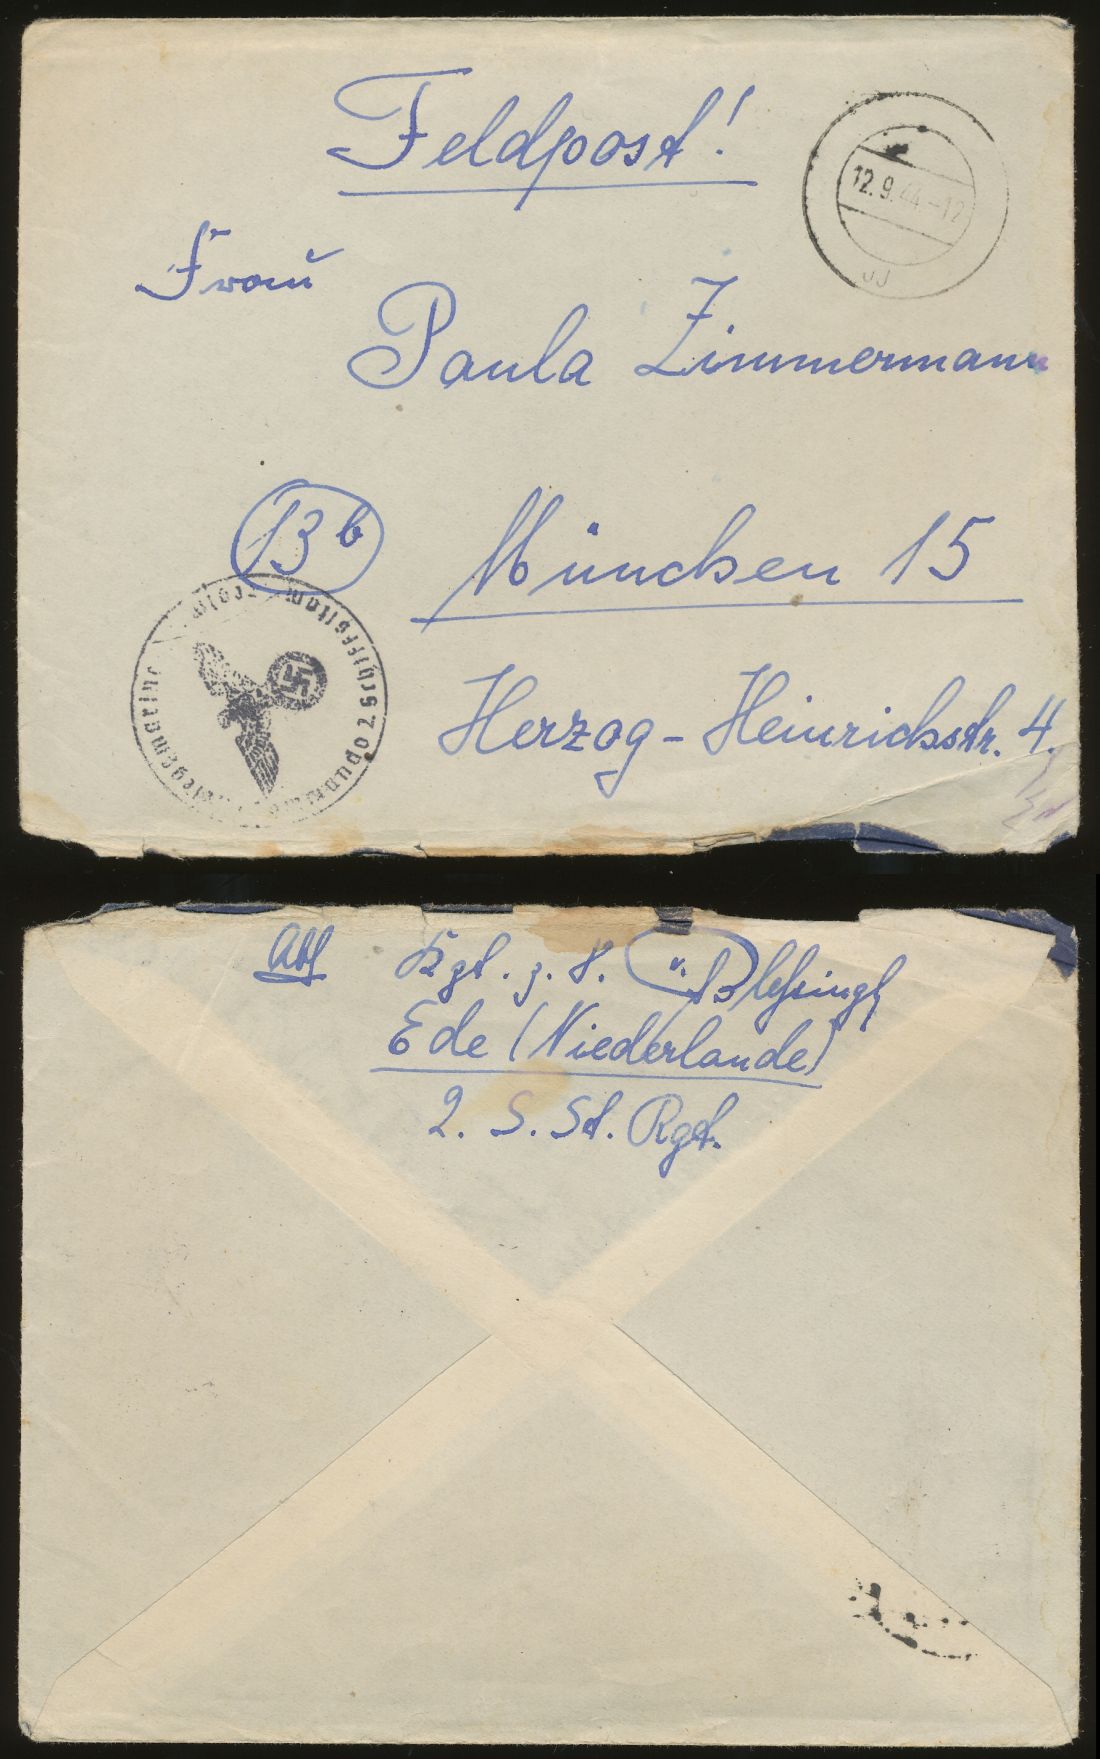 Feldpost!
12.9.44.-12
Frau
Paula Zimmermann
13b München 15
Herzog-Heinrichstr. 4.
Abs
z. S. v. Blessingh
Ede (Niederlande)
2. S. St. Rgt.